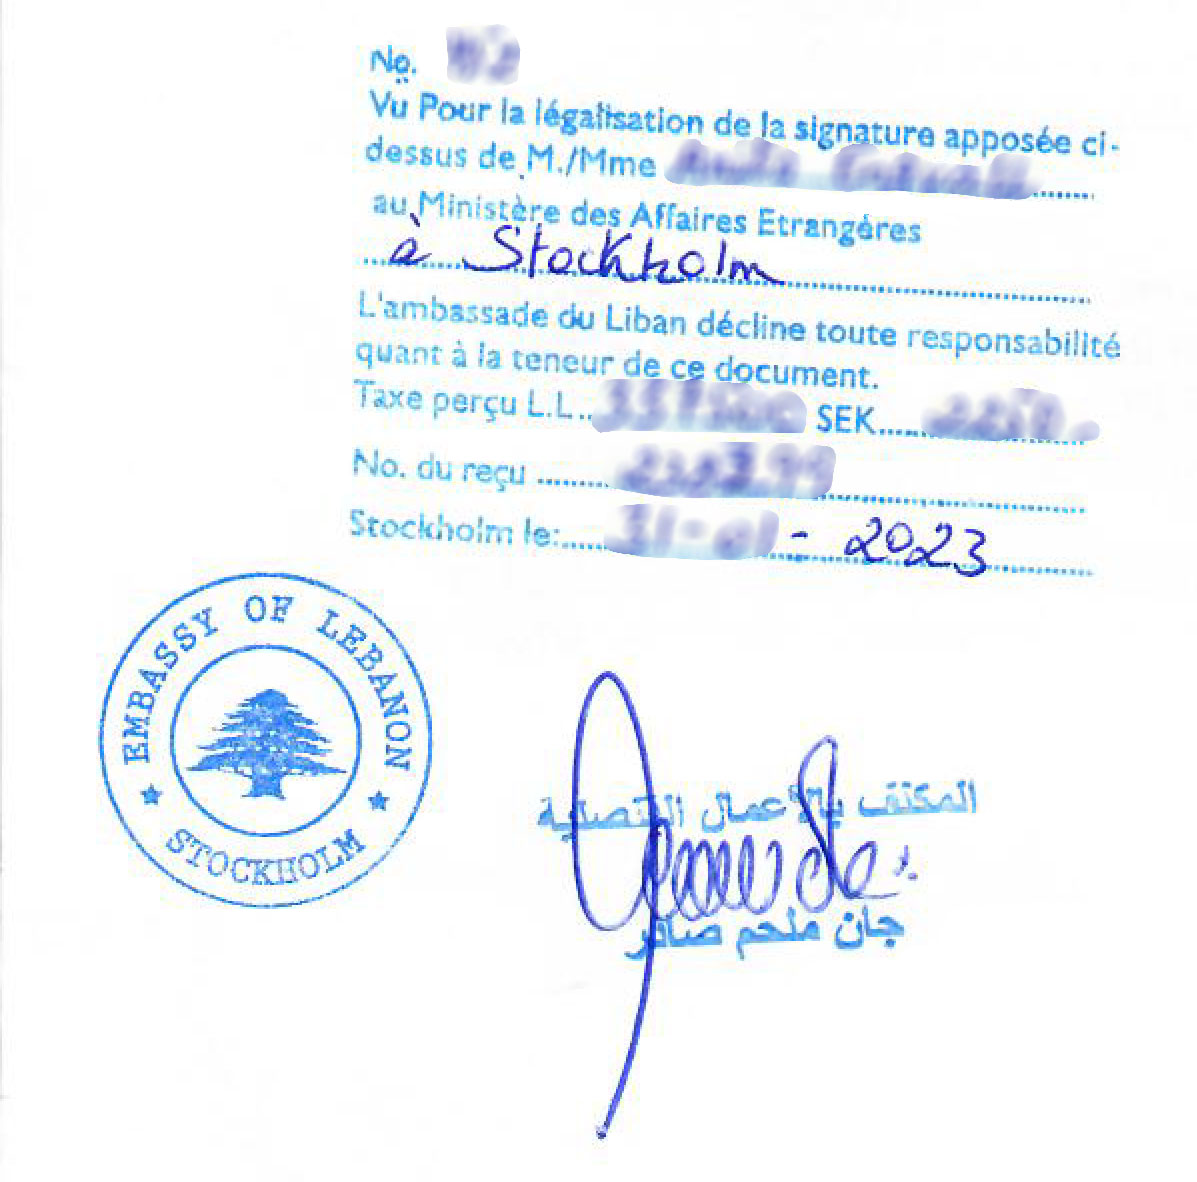 No.
Vu Pour la légalisation de la signature apposée ci-
dessus de M./Mme
au Ministère des Affaires Etrangéres
à Stockholm
L'ambassade du Liban décline toute responsabilité
quant à la teneur de ce document.
Taxe perçu L.L.. SEK
No. du reçu
Stockholm le: - 2023
EMBASSY OF LEBANON
STOCKHOLM
المكلف بالأعمال القنصلية
جان ملحم صافر